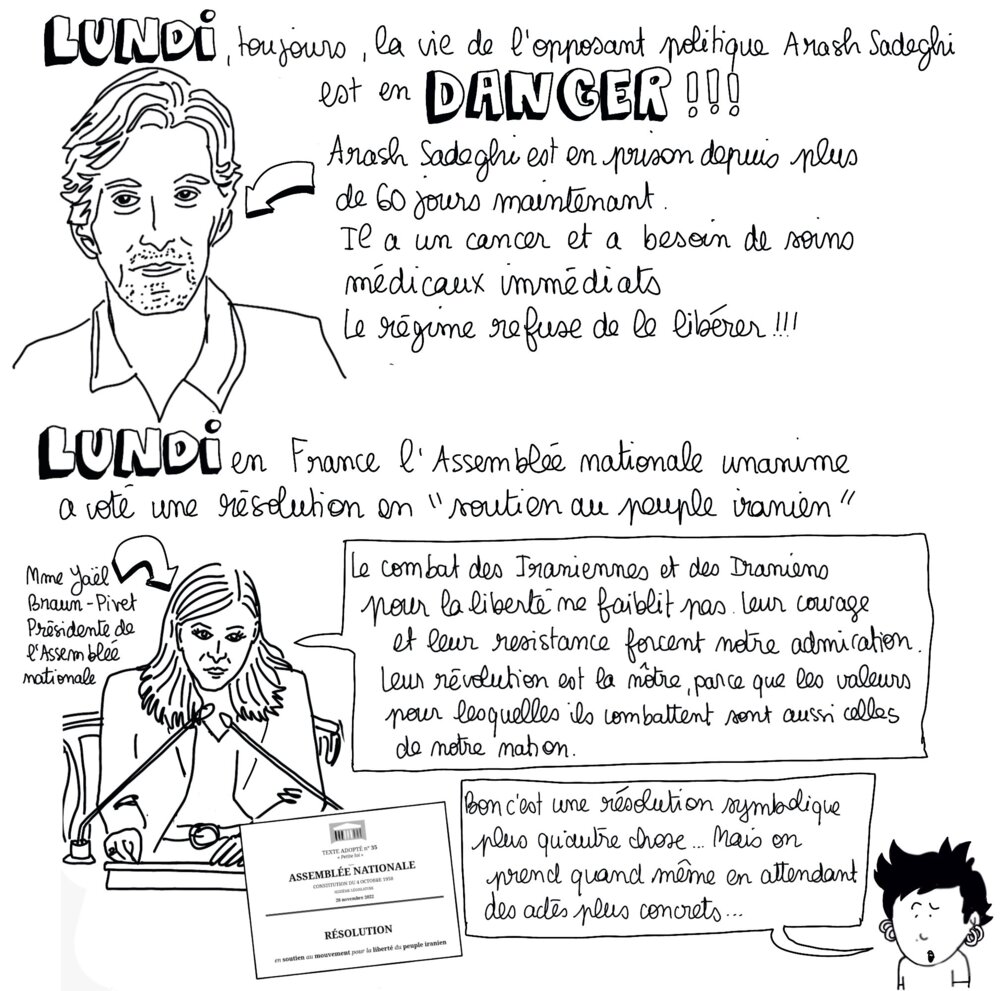 LUNDI, toujours, la vie de l'opposant politique Arash Sadeghi
est en DANGER !!!
Arash Sadeghi est en prison depuis plus
de 60 jours maintenant.
Il a un cancer et a besoin de soins
médicaux immédiats
Le régime refuse de le libérer !!!
LUNDI en France l'Assemblée nationale unanime
a voté une résolution en "soutien au peuple iranien"
Mme Yaël
Braun-Pivet
Présidente de
l'Assemblée
nationale
Le combat des Iraniennes et des Iraniens
pour la liberté ne faiblit pas. Leur courage
et leur resistance forcent notre admiration.
Leur révolution est la nôtre, parce que les valeurs
pour lesquelles ils combattent sont aussi celles
de notre nation.
TEXTE ADOPTÉ n° 35
« Petite loi »
ASSEMBLÉE NATIONALE
CONSTITUTION DU 4 OCTOBRE 1958
SEIZIÈME LÉGISLATURE
28 novembre 2022
RÉSOLUTION
en soutien au mouvement pour la liberté du peuple iranien
Bon c'est une résolution symbolique
plus qu'autre chose... Mais on
prend quand même en attendant
des actes plus concrets...